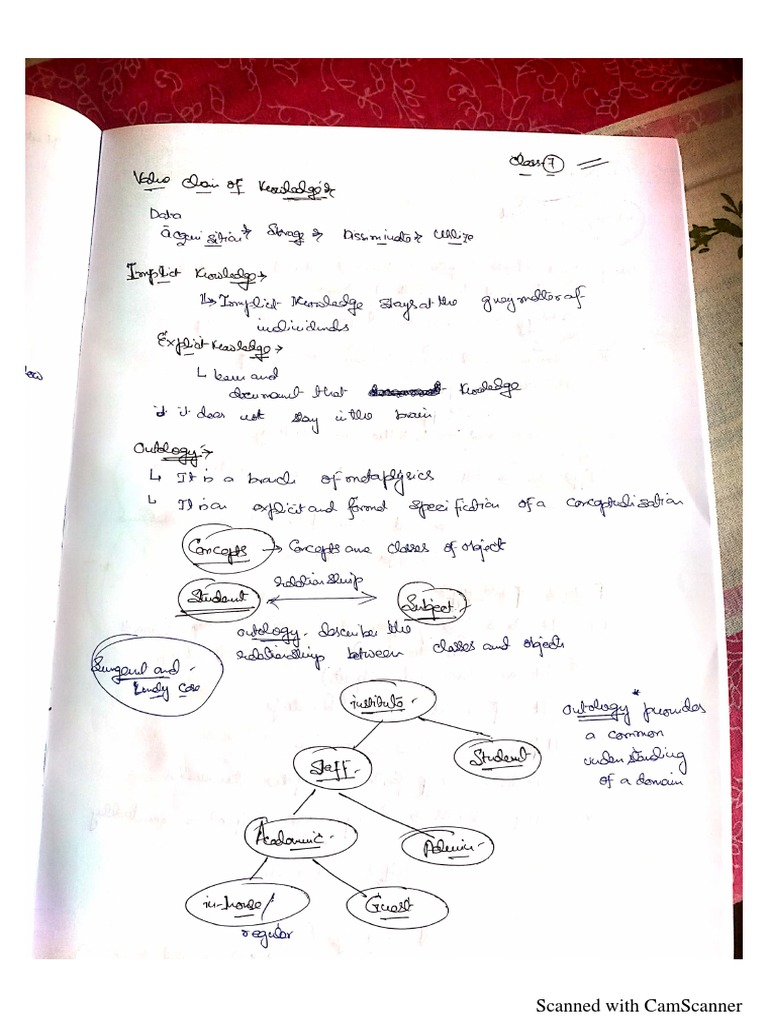 Class 7
Value Chain of Knowledge
Data
acquisition Storage Dissiminate Utilize
Implict Knowledge
Implict Knowledge stays at the grey matter of
individuals
Explict Knowledge
and
document that Knowledge
it does not stay in the brain
Ontology
It is a branch of metaphysics
It is an explicit and formal specification of a conceptualisation
Concepts → Concepts are classes of object
relationship
Student Subject
Ontology describe the
relationship between classes and objects
and
Case
institute
ontology provides
a common
understanding
of a domain
Staff Student
Academic Admin
in-house/ Guest
regular
Scanned with CamScanner